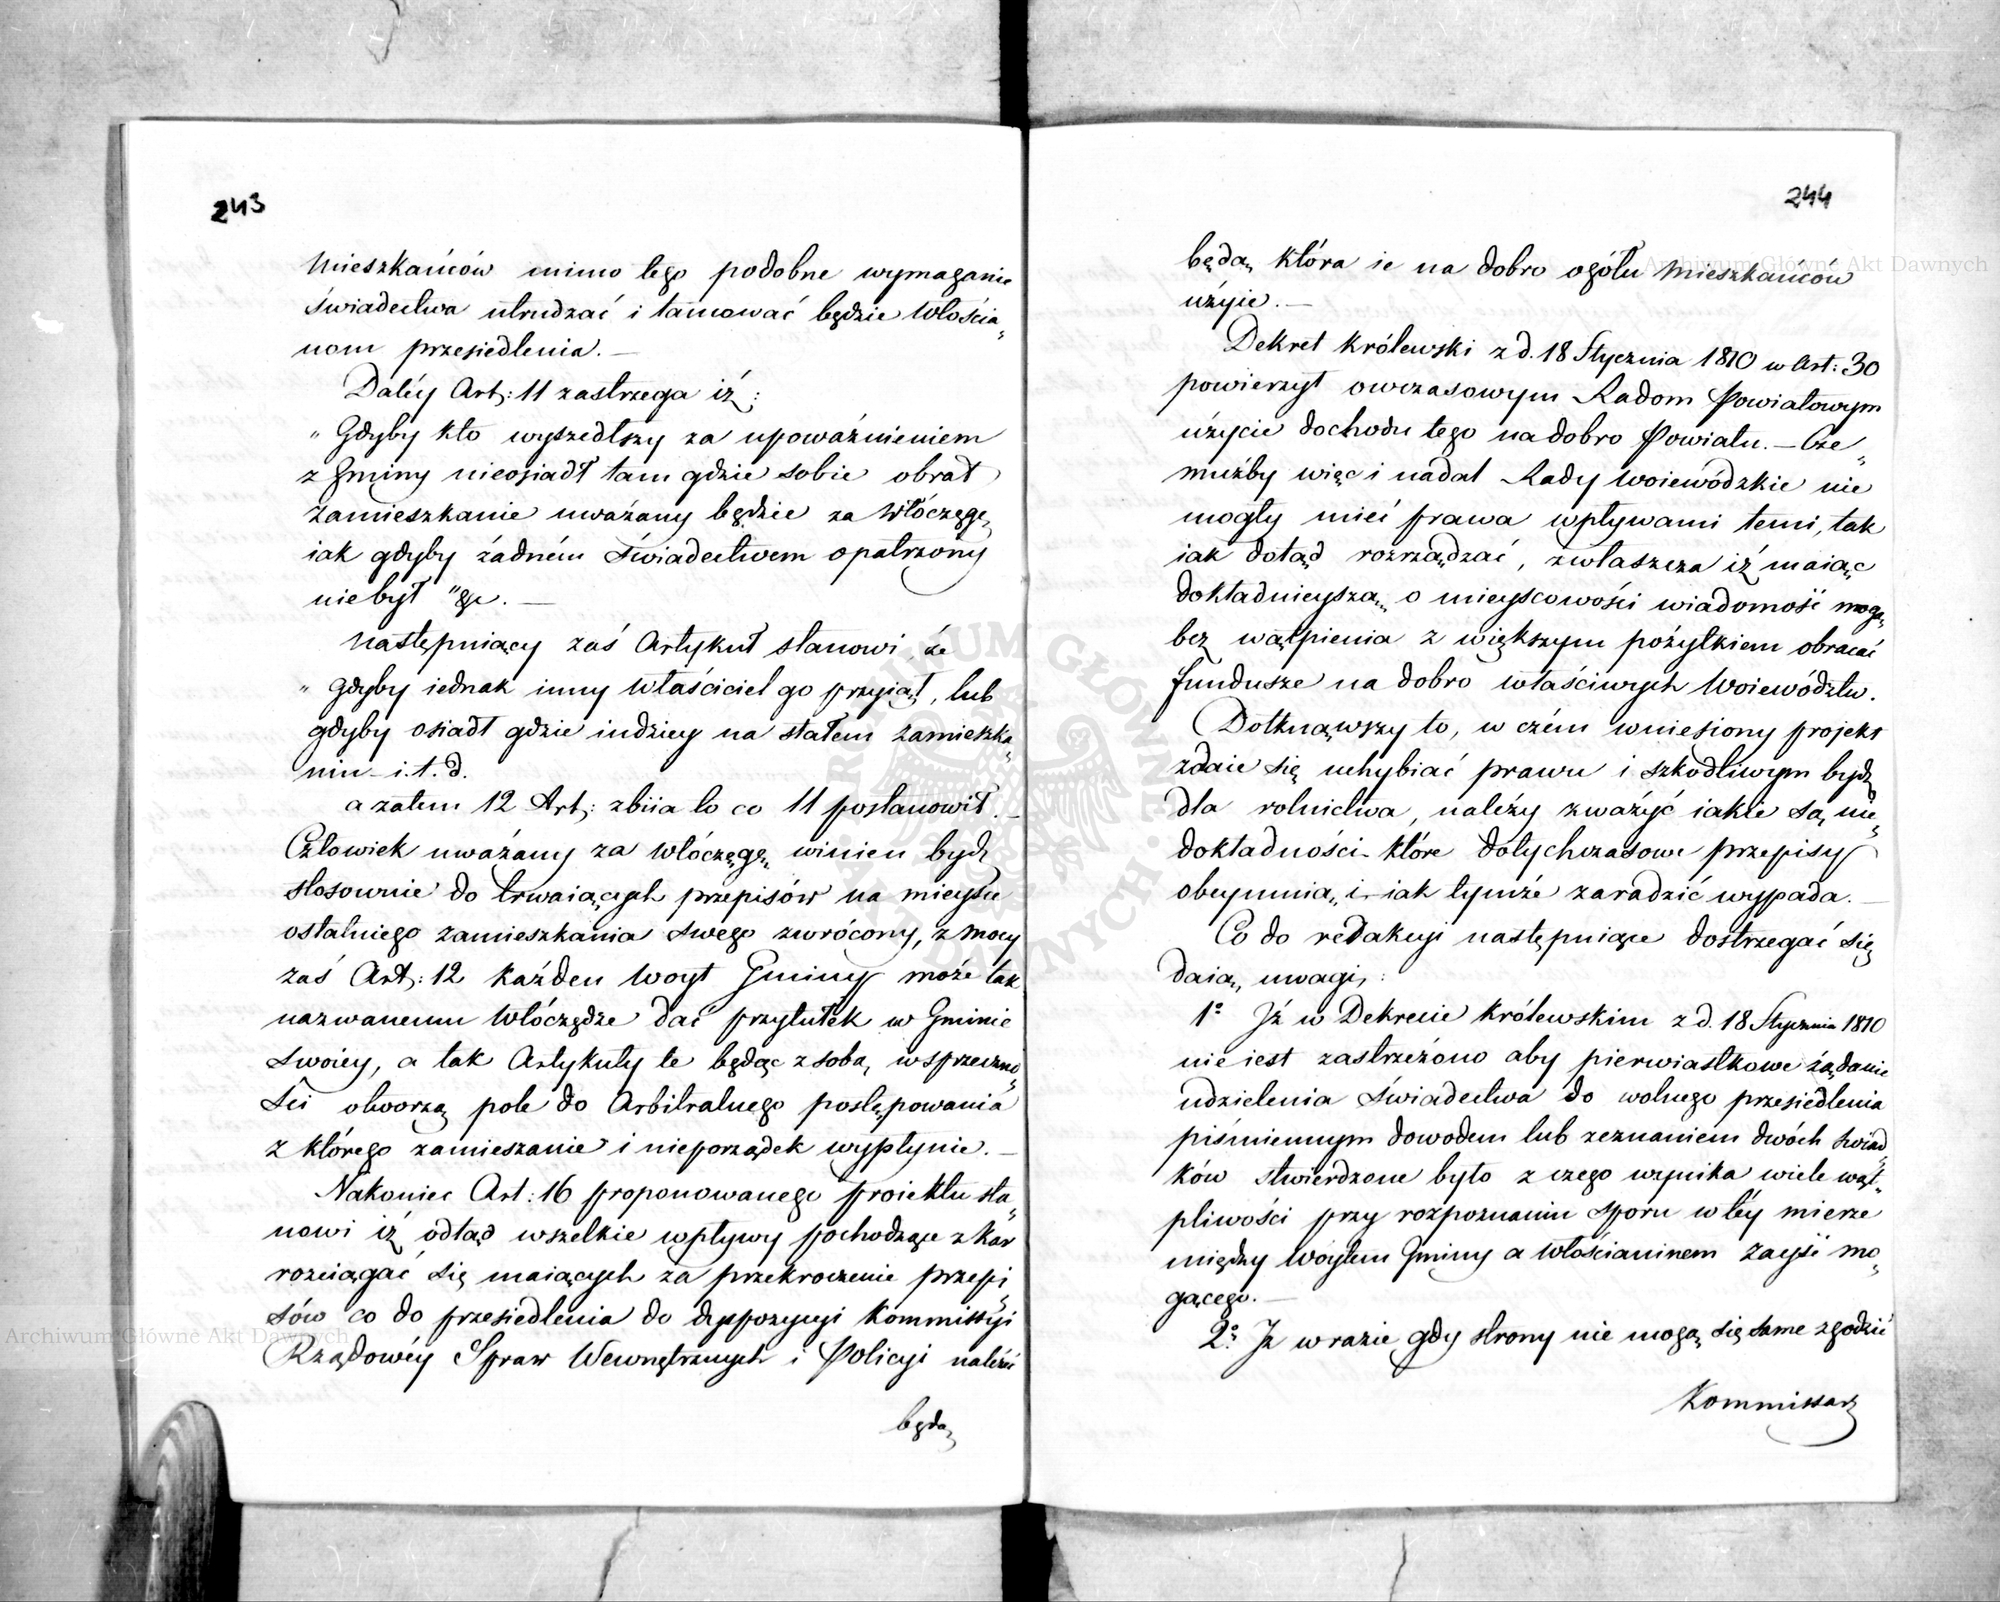 243
Mieszkańców mimo tego podobne wymaganie
świadectwa utrudzać i tamować będzie Włościa„
nom przesiedlenia. —
Daléy Art: 11 zastrzega iż:
„ Gdyby kto wyszedłszy za upoważnieniem
z Gminy nieosiadł tam gdzie sobie obrał
zamieszkanie uważany będzie za Włóczęgę,
iak gdyby żadném świadectwem opatrzony
niebył "&c. —
Następniący zaś Artykuł stanowi, że
„ gdyby iednak inny Właściciel go przyiął, lub
gdyby osiadł gdzie indziey na stałem zamieszka„
niu - i.t.d.
a zatem 12 Art: zbiia to co 11 postanowił. —
Człowiek uważany za Włóczęgę, winien bydź
stosownie do trwaiących przepisów na mieysce
ostatniego zamieszkania swego zwrócony, z mocy
zaś Art: 12 każden Woyt Gminy może tak
nazwanemu Włóczędze dać przytułek w Gminie
swoiey, a tak Artykuły te będąc z sobą w sprzeczno„
ści otworzą pole do Arbitralnego postępowania
z którego zamieszanie i nieporządek wypłynie. —
Nakoniec Art: 16 proponowanego proiektu sta„
nowi iż odtąd wszelkie wpływy pochodzące z kar
rozciągać się maiących za przekroczenie przepi„
sów co do przesiedlenia do dyspozycyi Kommissyi
Rządowéy Spraw Wewnętrznych i Policyi należeć
będą
244
będą, która ie na dobro ogółu Mieszkańców
użyie. —
Dekret Królewski z d. 18 Stycznia 1810 w Art: 30
powierzył owczasowym Radom Powiatowym
użycie dochodu tego na dobro Powiatu. — Cze„
mużby więc i nadal Rady Woiewódzkie nie
mogły mieć prawa wpływami temi, tak
iak dotąd rozrządzać, zwłaszcza iż maiąc
dokładnieyszą o mieyscowości wiadomość mogą
bez wątpienia z większym pożytkiem obracać
fundusze na dobro właściwych Woiewództw.
Dotknąwszy to, w czém wniesiony projekt
zdaie się uchybiać prawu i szkodliwym bydź
dla rolnictwa, należy zważyć iakie są nie„
dokładności które dotychczasowe przepisy
obeymuią, i iak tymże zaradzić wypada. —
Co do redakcyi następniące dostrzegać się
daią, uwagi:
1° Iż w Dekrecie Królewskim z d. 18 Stycznia 1810
nie iest zastrzeżono aby pierwiastkowe żądanie
udzielenia świadectwa do wolnego przesiedlenia
piśmiennym dowodem lub zeznaniem dwóch świad„
ków stwierdzone było z czego wynika wiele wąt„
pliwości przy rozpoznaniu sporu w téy mierze
między Woytem Gminy a Włościaninem zayść mo„
gącego. —
2° Iż w razie gdy strony nie mogą się same zgodzić
Kommissarz
Archiwum Główne Akt Dawnych
Archiwum Główne Akt Dawnych
ARCHIWUM GŁÓWNE AKT DAWNYCH